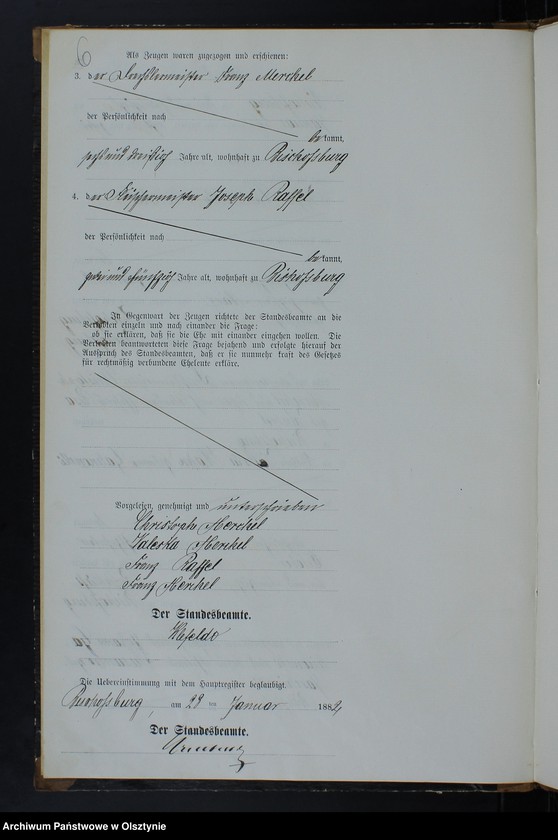 6
Als Zeugen waren zugezogen und erschienen:
3. der Franz Merchel
der Persönlichkeit nach
bekannt,
sechs und dreißig Jahre alt, wohnhaft zu Bischofsburg
4. der Fleischermeister Joseph Raffel
der Persönlichkeit nach
bekannt,
zwei und fünfzig Jahre alt, wohnhaft zu Bischofsburg
In Gegenwart der Zeugen richtete der Standesbeamte an die
Verlobten einzeln und nach einander die Frage:
ob sie erklären, daß sie die Ehe mit einander eingehen wollen. Die
Verlobten beantworteten diese Frage bejahend und erfolgte hierauf der
Ausspruch des Standesbeamten, daß er sie nunmehr kraft des Gesetzes
für rechtmäßig verbundene Eheleute erkläre.
Vorgelesen, genehmigt und unterschrieben
Christoph Merchel
Valeska Merchel
Franz Raffel
Franz Merchel
Der Standesbeamte.
Die Uebereinstimmung mit dem Hauptregister beglaubigt.
Bischofsburg, am 29 ten Januar 1884
Der Standesbeamte.
Archiwum Państwowe w Olsztynie